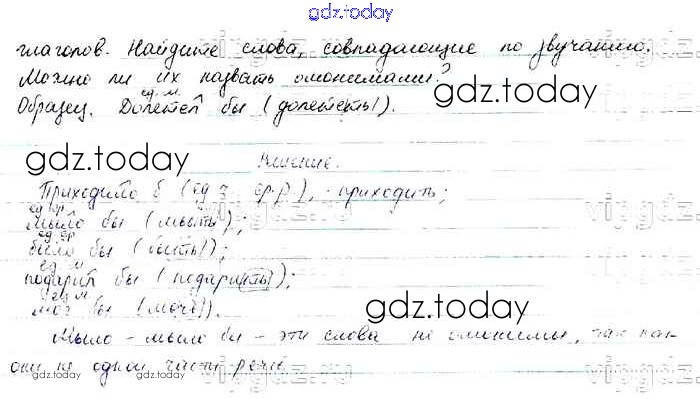 gdz.today
глаголов. Найдите слова, совпадающие по звучанию.
Можно ли их назвать омонимами?
gdz.today
ед. м
Образец. Долетел бы (долететь).
gdz.today
Решение.
Приходило б (ед ч ср.р), приходить;
ед ср
мыло бы (мыть);
ед ср
было бы (быть);
ед м
подарил бы (подарить);
ед м
мог бы (мочь).
gdz.today
Мыло - мыло бы - эти слова не омонимы, так как
они не одной части речи.
gdz.today
gdz.today